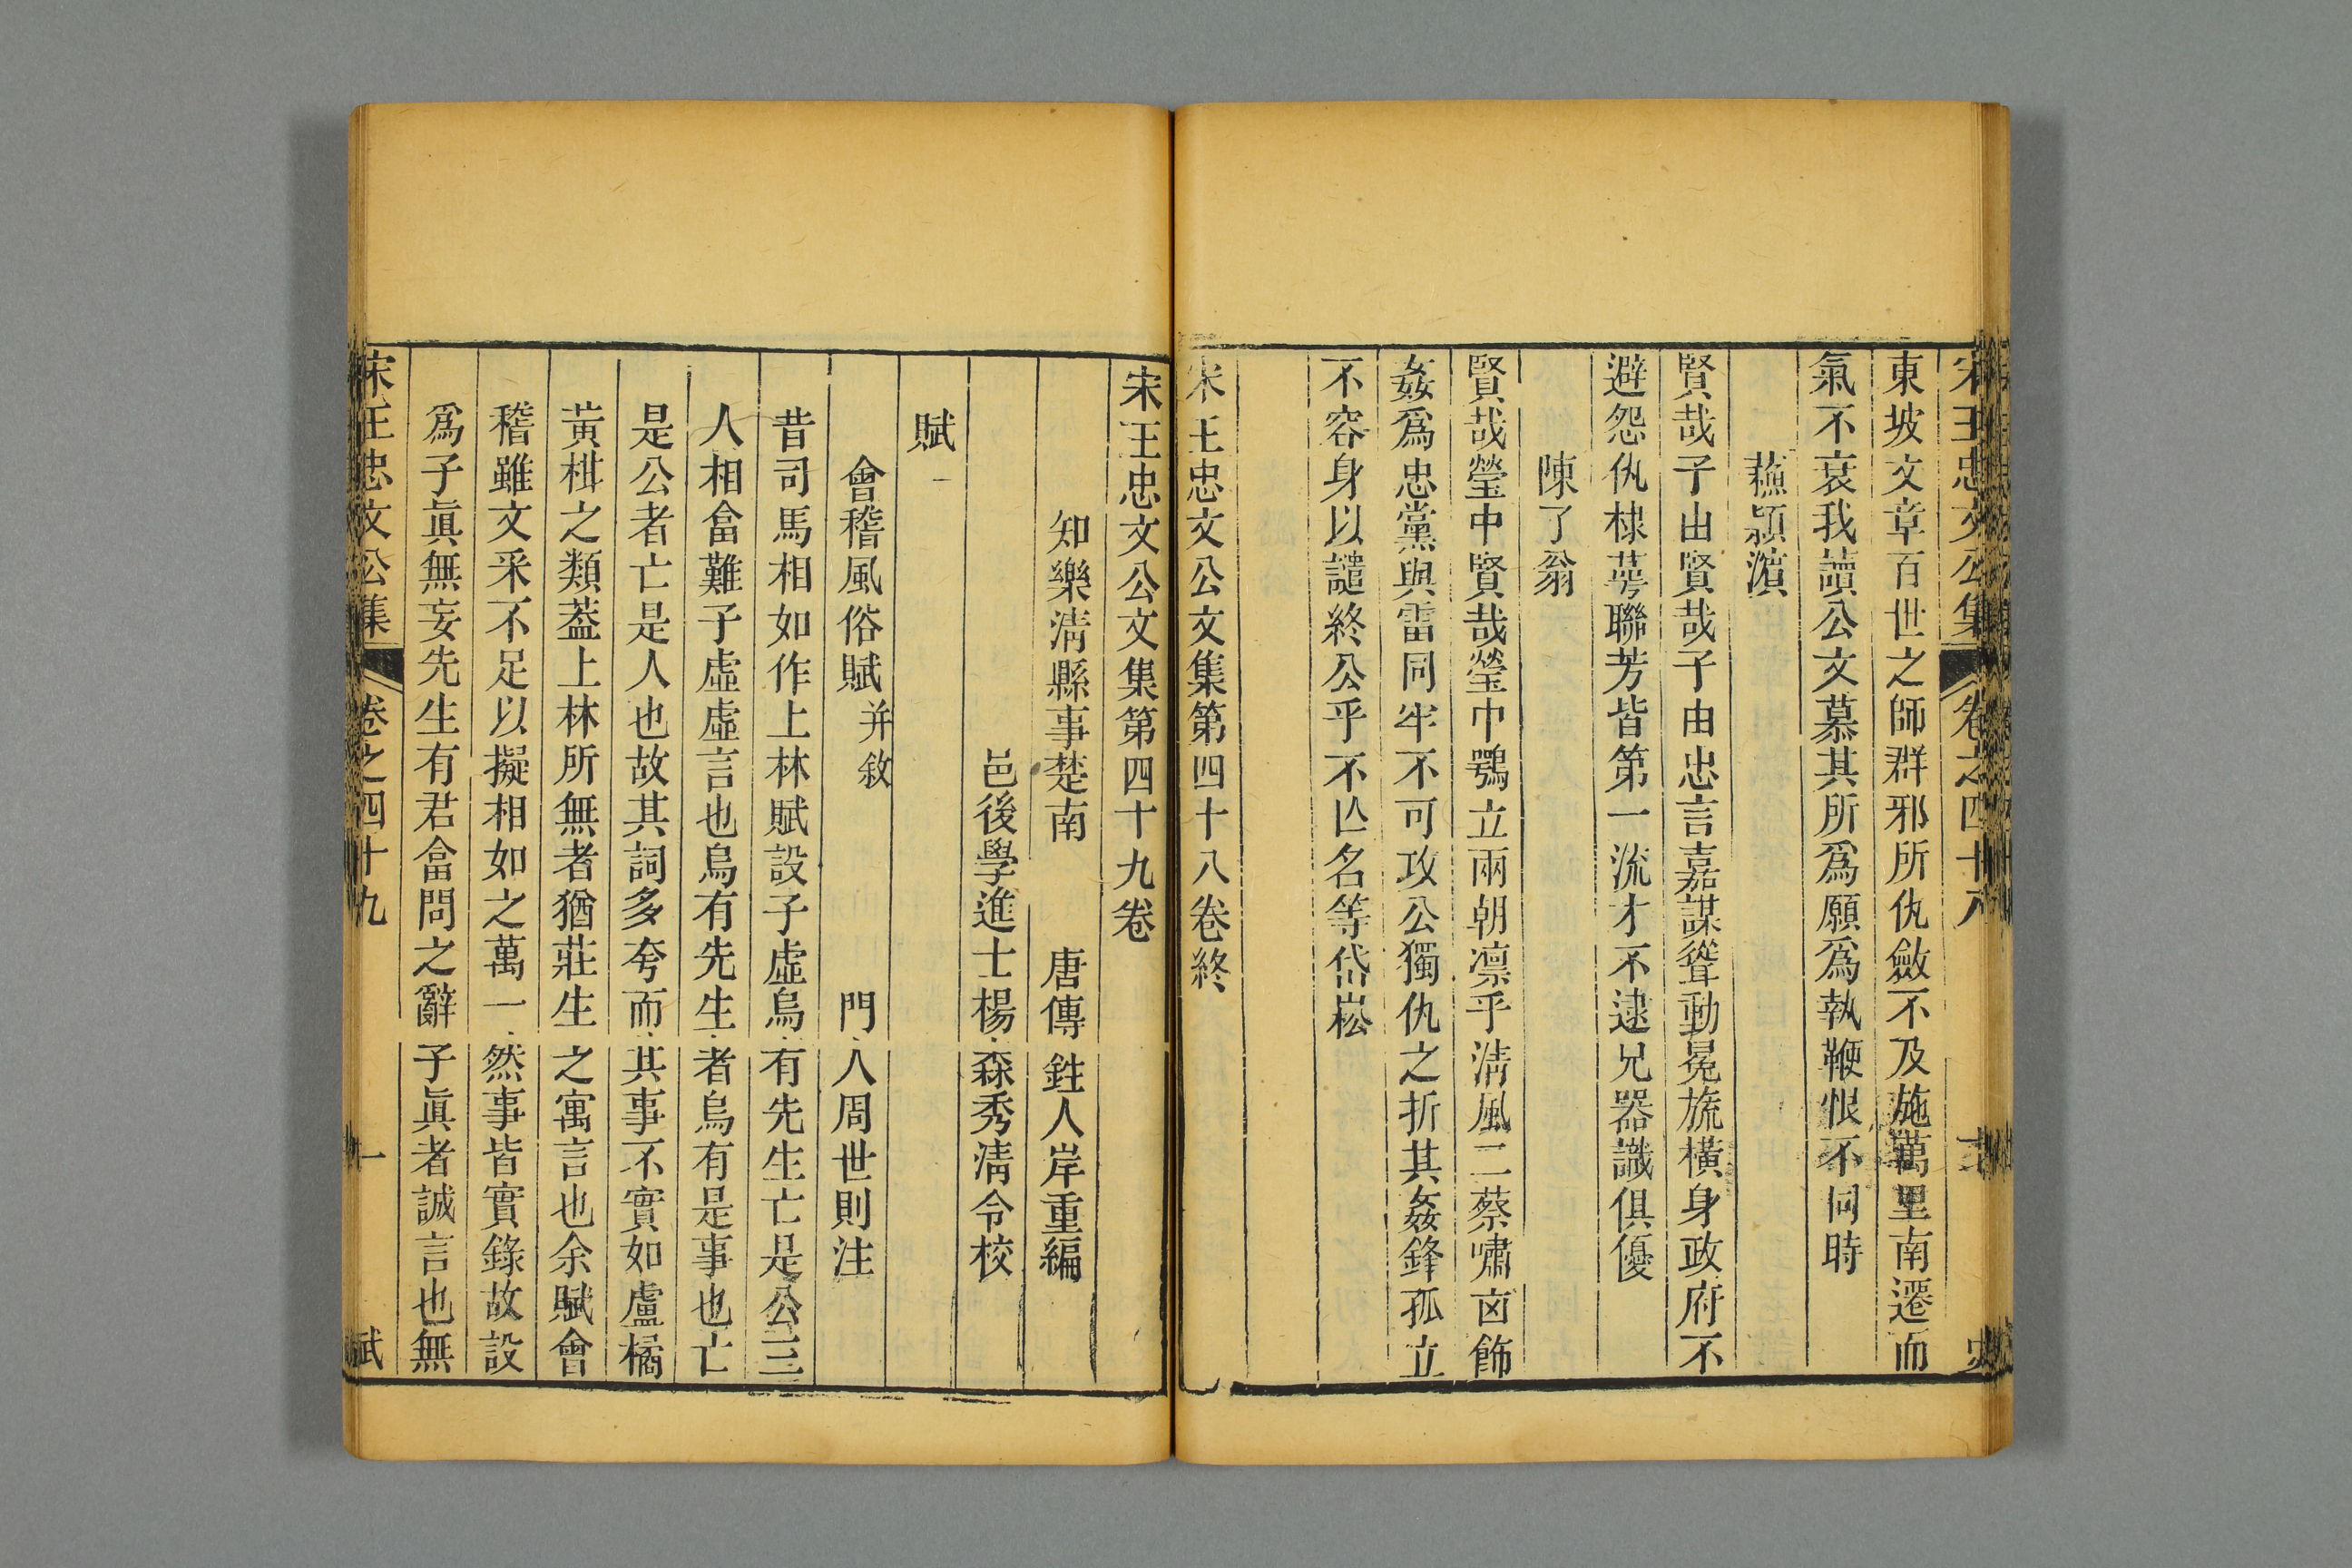 宋王忠文公集 卷之四十八
東坡文章百世之師群邪所仇斂不及施萬里南遷而
氣不衰我讀公文慕其所爲願爲執鞭恨不同時
蘓潁濵
賢哉子由賢哉子由忠言嘉謀聳動冕旒橫身政府不
避怨仇棣萼聯芳皆第一流才不逮兄器識俱優
陳了翁
賢哉瑩中賢哉瑩中鶚立兩朝凛乎淸風二蔡嘯㐫飾
姦爲忠黨與雷同牢不可攻公獨仇之折其姦鋒孤立
不容身以譴終公乎不亾名等岱崧
宋王忠文公文集第四十八卷終
宋王忠文公文集第四十九卷
知樂淸縣事楚南 唐傳鉎人岸重編
邑後學進士楊森秀淸令校
賦
會稽風俗賦并敘 門人周世則注
昔司馬相如作上林賦設子虛烏有先生亡是公三
人相畣難子虛虛言也烏有先生者烏有是事也亡
是公者亡是人也故其詞多夸而其事不實如盧橘
黃柑之類葢上林所無者猶莊生之寓言也余賦會
稽雖文采不足以擬相如之萬一然事皆實錄故設
爲子眞無妄先生有君畣問之辭子眞者誠言也無
宋王忠文公集 卷之四十九 一 賦